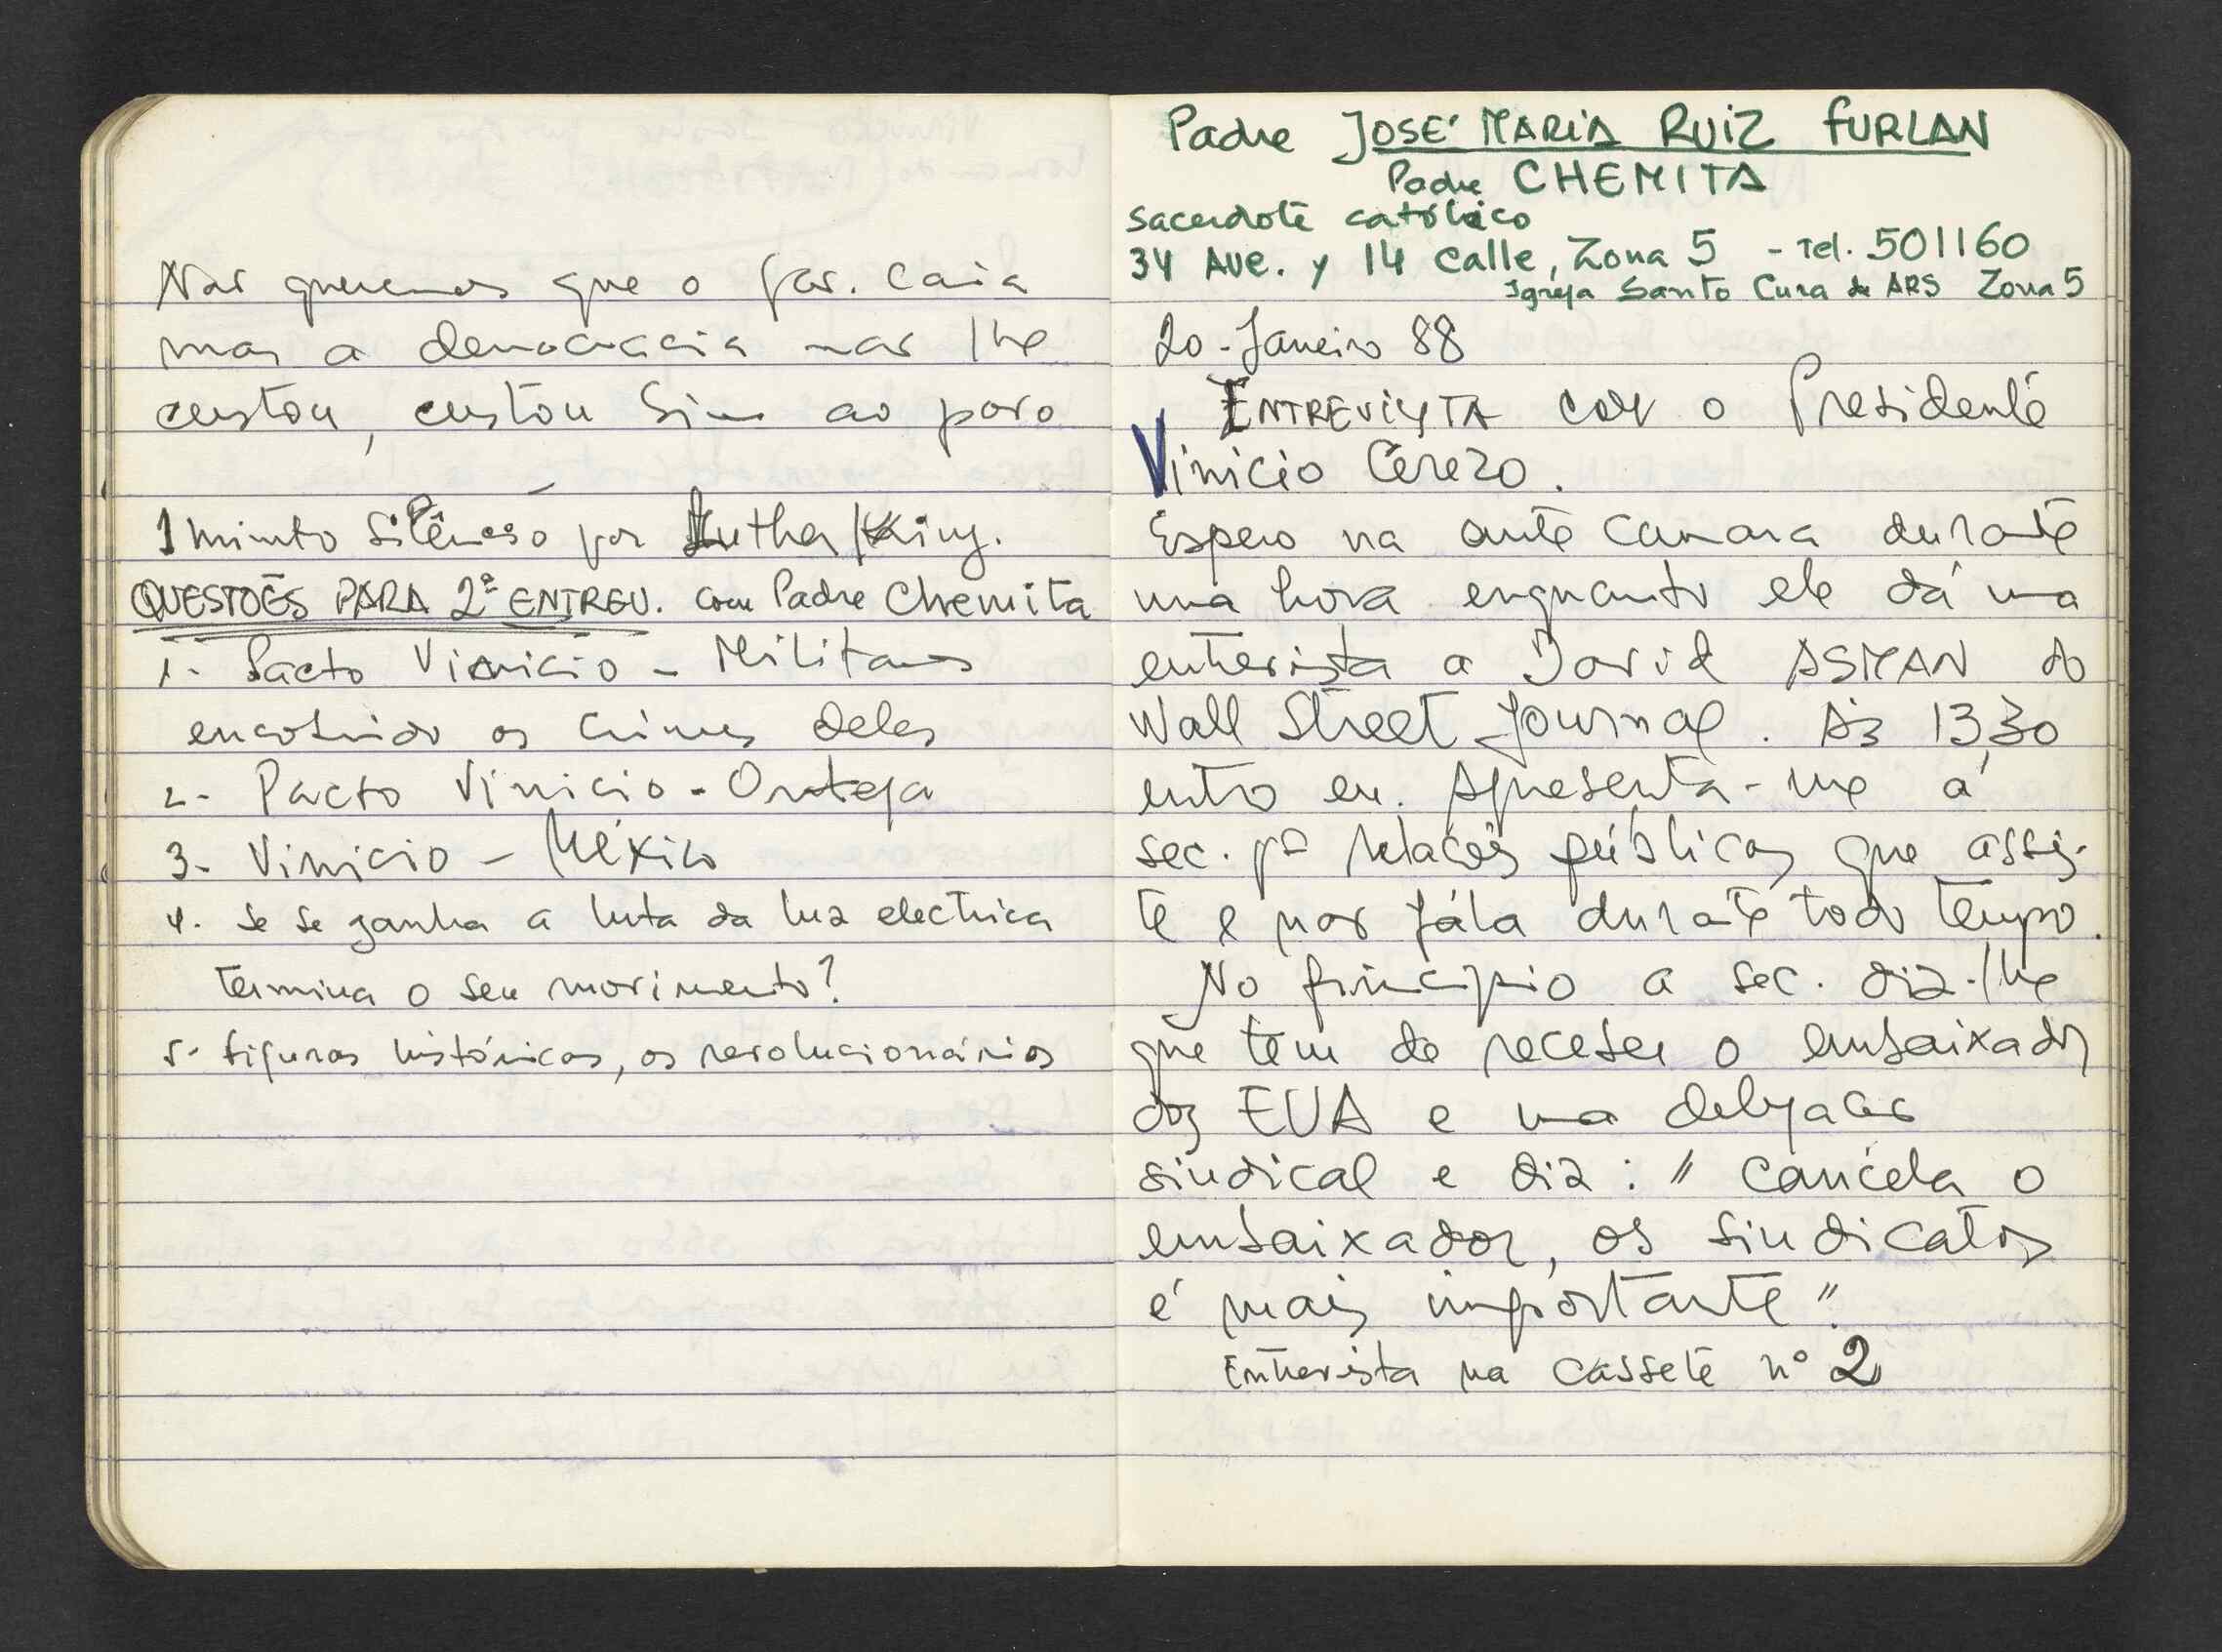 Não queremos que o gov. caia
mas a democracia não lhe
custou, custou sim ao povo
1 minuto silêncio por Luther King.
QUESTÕES PARA 2ª ENTREV. com Padre Chemita
1- Pacto Vinicio - Militares
encobrindo os crimes deles
2- Pacto Vinicio - Ortega
3- Vinicio - México
4. Se se ganha a luta da luz electrica
termina o seu movimento?
5- figuras históricas, os revolucionários
Padre JOSÉ MARIA RUIZ FURLAN
Padre CHEMITA
Sacerdote católico
34 AVE. y 14 Calle, Zona 5 - Tel. 501160
Igreja Santo Cura de ARS Zona 5
20-Janeiro 88
ENTREVISTA com o Presidente
Vinicio Cerezo.
Espero na ante camara durante
uma hora enquanto ele dá uma
entrevista a David ASMAN do
Wall Street Journal. Às 13,30
entro eu. Apresenta-me à
sec. pª relações públicas que assis-
te e não fala durante todo tempo.
No princípio a sec. diz-lhe
que tem de receber o embaixador
dos EUA e uma delegação
sindical e diz: "Cancela o
embaixador, os sindicatos
é mais importante"
Entrevista na cassete nº 2